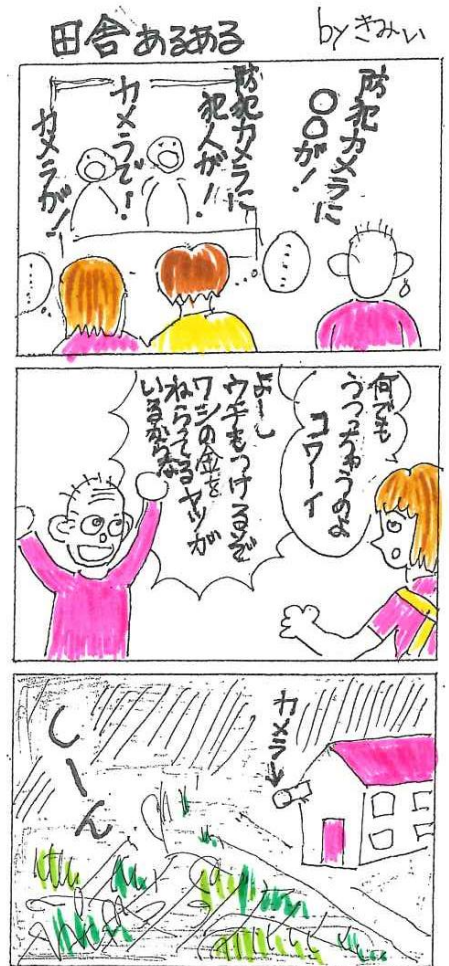 田舎あるある
byきみぃ
防犯カメラに
〇〇が！
防犯カメラに
犯人が！
カメラで！
カメラが！
・・・・
・・・・
何でも
うつっちゃうのよ
コワーイ
よーし
ウチもつけるぞ
ワシの金を
ねらってるヤツが
いるからな
カメラ
しーん